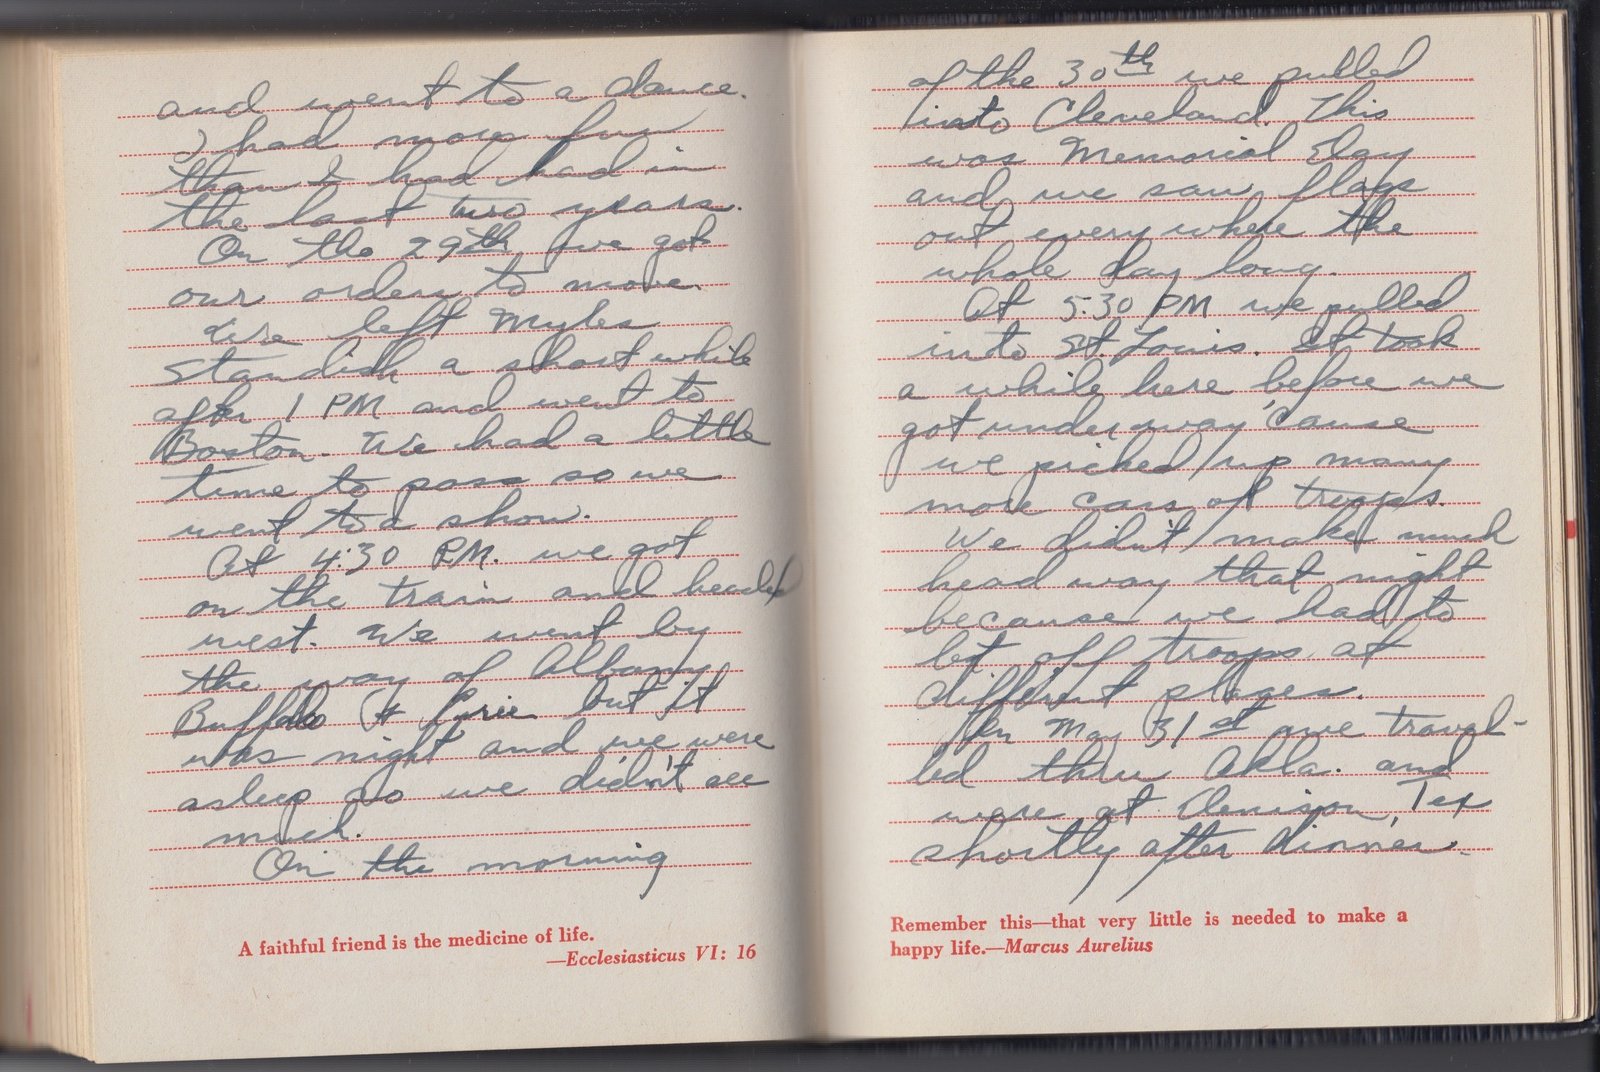 and went to a dance.
I had more fun
than I had had in
the last two years.
On the 29th we got
our orders to move.
We left Myles
Standish a short while
after 1 PM and went to
Boston. We had a little
time to pass so we
went to a show.
At 4:30 P.M. we got
on the train and headed
west. We went by
the way of Albany,
Buffalo & Erie but it
was night and we were
asleep so we didn't see
much.
On the morning
A faithful friend is the medicine of life.
—Ecclesiasticus VI: 16
of the 30th we pulled
into Cleveland. This
was Memorial Day
and we saw flags
out everywhere the
whole day long.
At 5:30 PM we pulled
into St. Louis. It took
a while here before we
got underway 'cause
we picked up many
more cars of troops.
We didn't make much
head way that night
because we had to
let off troops at
different places.
On May 31st we travel-
led thru Okla. and
were at Denison, Tex
shortly after dinner.
Remember this—that very little is needed to make a
happy life.—Marcus Aurelius